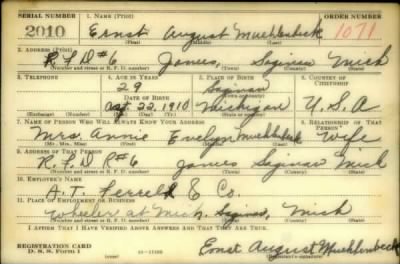 SERIAL NUMBER 1. NAME (Print) ORDER NUMBER
2010 Ernst August Muehlenbeck 1071
(First) (Middle) (Last)
2. ADDRESS (Print)
R.F.D #6 James, Saginaw Mich
(Number and street or R. F. D. number) (Town) (County) (State)
3. TELEPHONE 4. AGE IN YEARS 5. PLACE OF BIRTH 6. COUNTRY OF CITIZENSHIP
29 Saginaw
DATE OF BIRTH
22, 1910 Michigan U.S.A
(Exchange) (Number) (Mo.) (Day) (Yr.) (State or country)
7. NAME OF PERSON WHO WILL ALWAYS KNOW YOUR ADDRESS 8. RELATIONSHIP OF THAT PERSON
Mrs. Annie Evelyn Muehlenbeck Wife
(Mr., Mrs., Miss) (First) (Middle) (Last)
9. ADDRESS OF THAT PERSON
R.F.D R#6 James Saginaw Mich
(Number and street or R. F. D. number) (Town) (County) (State)
10. EMPLOYER'S NAME
A.T. Ferrell & Co.
11. PLACE OF EMPLOYMENT OR BUSINESS
Wheeler at Mich, Saginaw, Mich
(Number and street or R. F. D. number) (Town) (County) (State)
I AFFIRM THAT I HAVE VERIFIED ABOVE ANSWERS AND THAT THEY ARE TRUE.
REGISTRATION CARD
D. S. S. Form 1 Ernst August Muehlenbeck
(Registrant's signature)